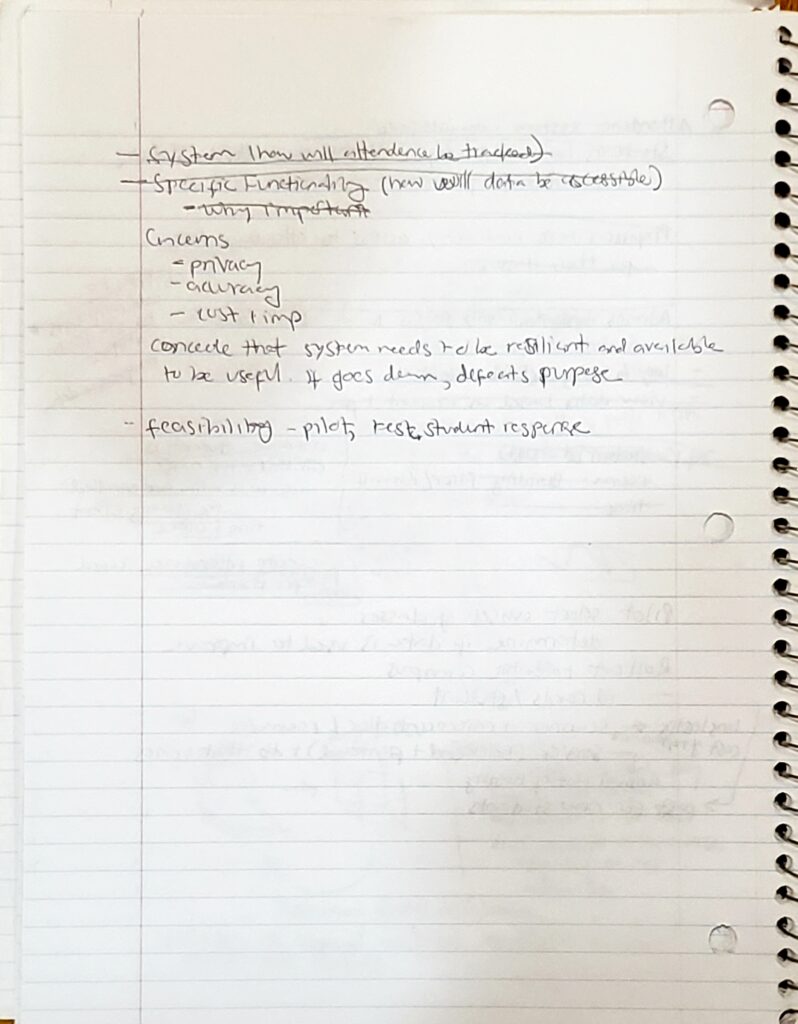 - System (how will attendence be tracked)
- Specific Functionality (how will data be accessible)
- why important
Concerns
- privacy
- accuracy
- cost + imp
concede that system needs to be resilient and available
to be useful. If goes down, defeats purpose
- feasibility - pilot, test, student response